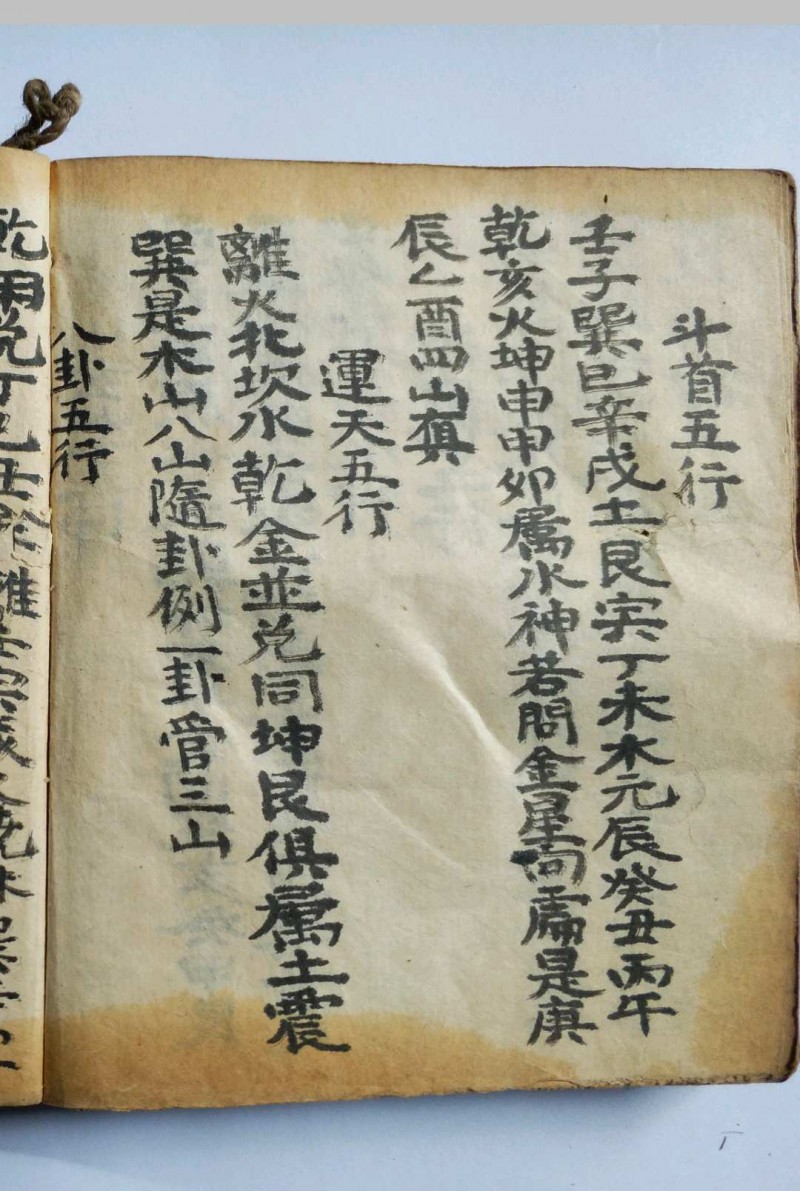 斗首五行
壬子巽巳辛戌土艮寅丁未木元辰癸丑丙午
乾亥火坤申甲卯属水神若問金星何處是庚
辰乙酉四山真
運天五行
離火北坎水乾金並兑同坤艮俱属土震
巽是木山八山隨卦例一卦管三山
八卦五行